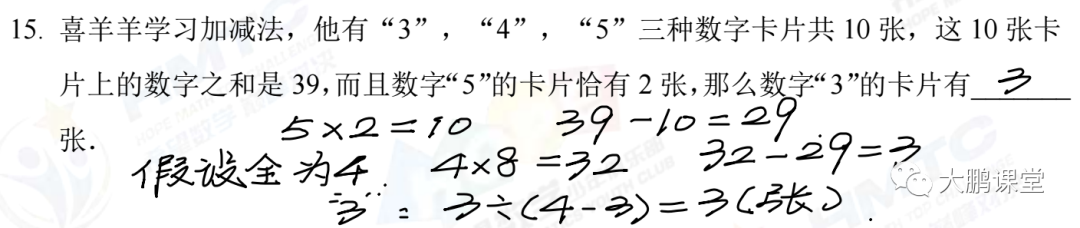 15. 喜羊羊学习加减法，他有“3”，“4”，“5”三种数字卡片共 10 张，这 10 张卡
片上的数字之和是 39，而且数字“5”的卡片恰有 2 张，那么数字“3”的卡片有 3
张．
5×2=10 39-10=29
假设全为4． 4×8=32 32-29=3
"3"： 3÷(4-3)=3(张)．
大鹏课堂